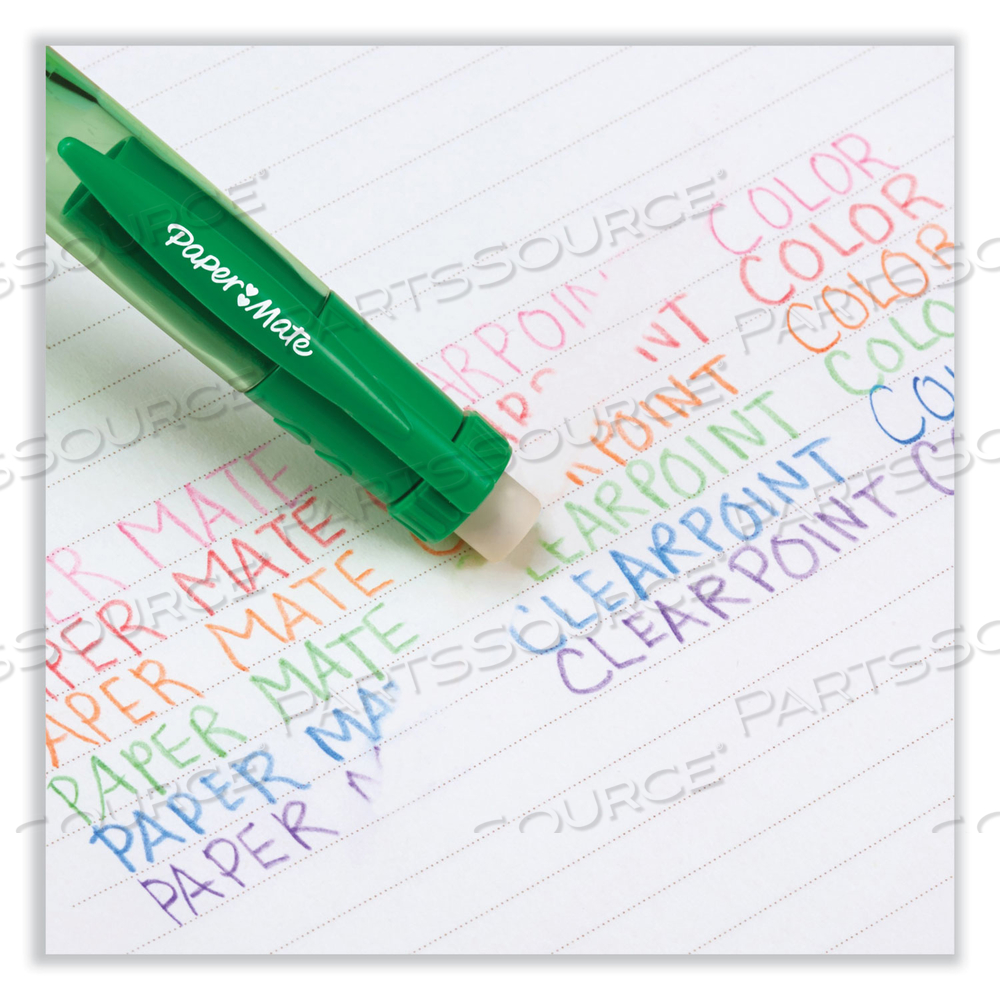 Paper Mate
ER MATE ARPOIN COLOR
PER MATE NT COLOR
APER MATE POINT COLOR
PAPER MATE LEARPOINT COLO
PAPER MA CLEARPOINT CO
PAPER CLEARPOINT C
PARTSSOURCE